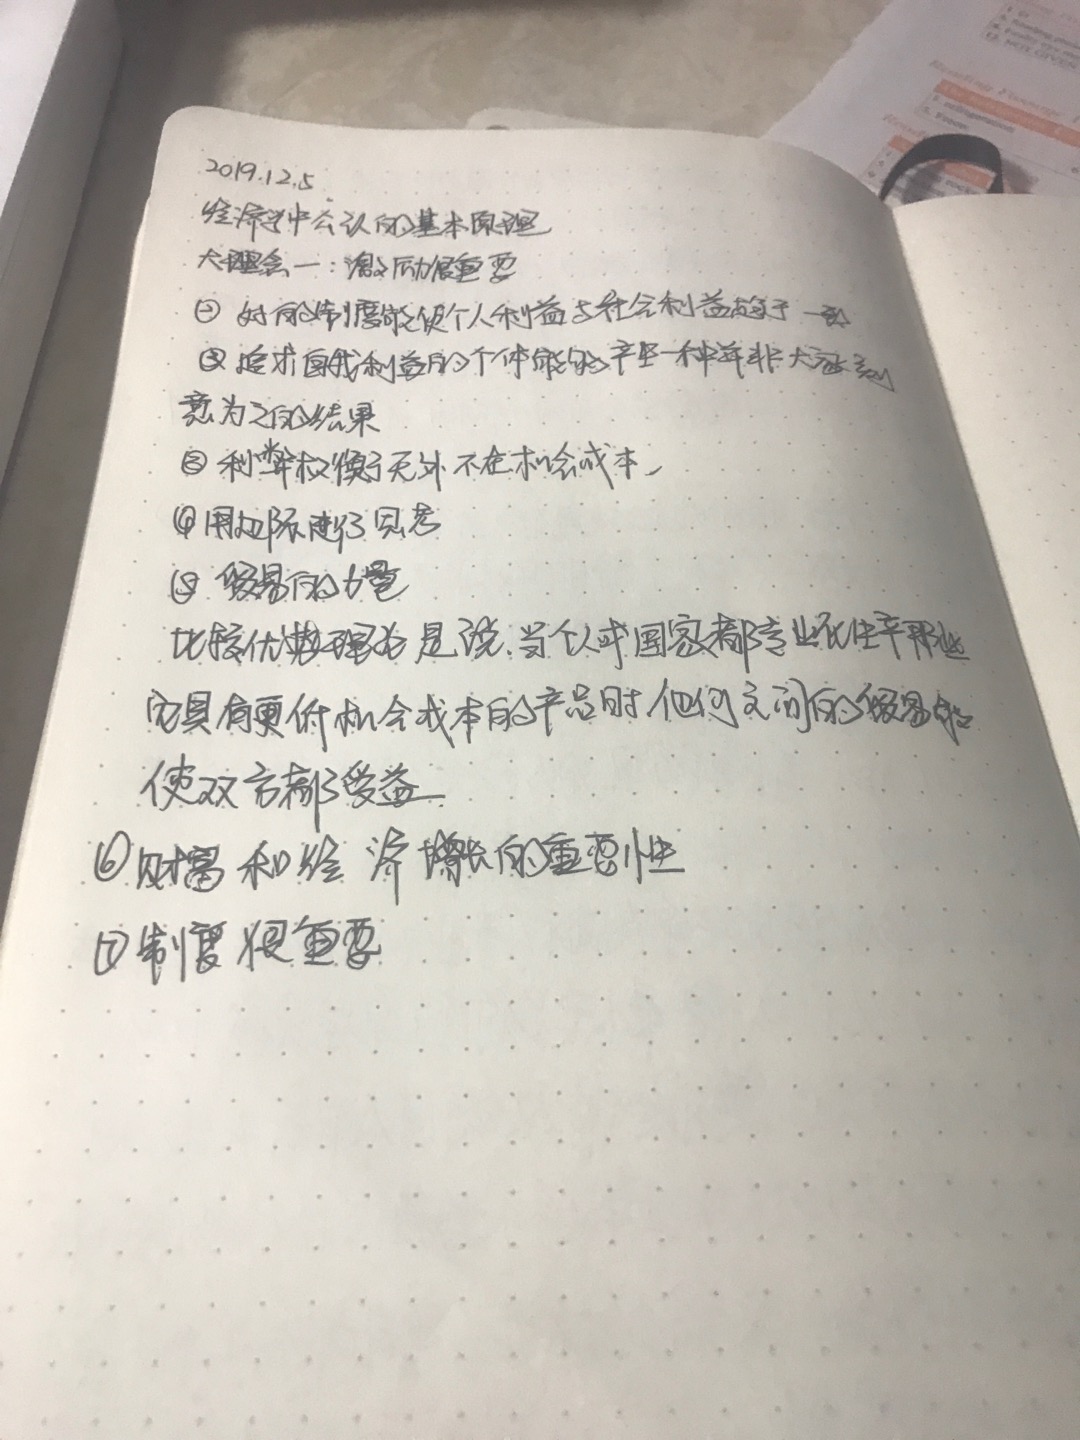 2019.12.5
经济学中公认的基本原理
大理念一:激励很重要
② 好的制度能使个人利益与社会利益趋于一致
追求自我利益的个体能够产生一种并非
意为之的结果
③ 利弊权衡无处不在机会成本
④ 用边际进行思考
⑤ 贸易的力量
比较优势理论是说,当个人或国家都专业化生产那些
它具有更低机会成本的产品时,他们之间的贸易能
使双方都受益
⑥ 财富和经济增长的重要性
⑦ 制度很重要
Reading Passage
NOT GIVEN